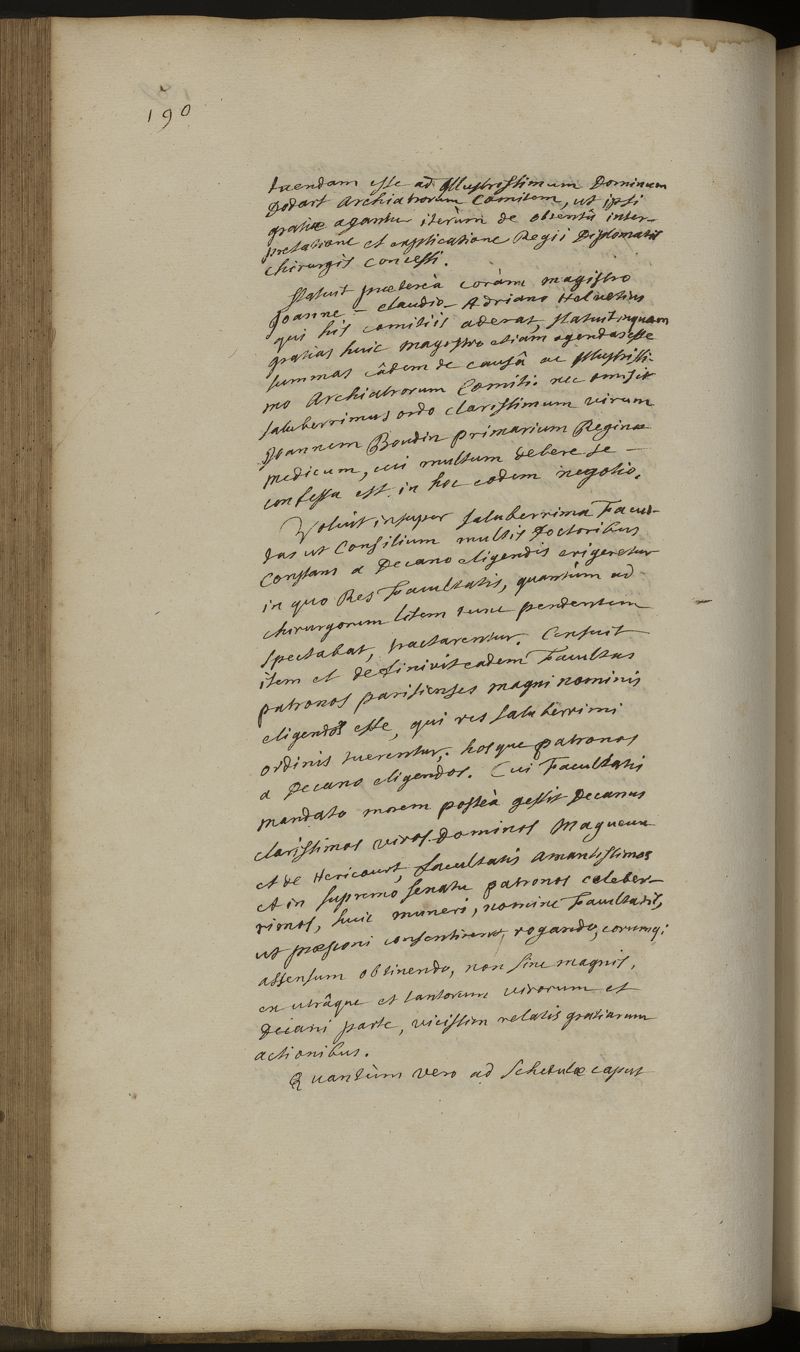 190
tuendam esse ad Illustrissimum Dominum
Dodart Archiatrorum Comitem, ut ipsi
gratiæ agantur iterùm de obtentâ inter-
pretatione et explicatione Regii Diplomatis
chirurgis concessi.
Statuit prætereà coràm magistro
Joanne - claudio - Adriano Helvetius
qui his comitiis aderat, statuit inquam
gratias huic magistro etiam agendas esse
summas eâdem de causâ ac Illustrissi-
mo Archiatrorum Comiti. nec omisit
saluberrimus ordo clarissimum virum
Joannem Boudin primarium Reginæ
medicum, cui multum debere se -
confessa est in hoc eodem negotio.
Voluit insuper saluberrima Facul-
tas ut Consilium multis Doctoribus
Constans a Decano eligendis erigeretur
in quo Res Facultatis, quantùm ad
chirurgorum litem tunc pendentem
spectabat, tractarentur. Censuit
item et definivit eadem Facultas
patronos parisienses magni nominis
eligendos esse, qui res saluberrimi
ordinis tuerentur, hosque patronos
a Decano eligendos. Cui Facultatis
mandato morem posteà gessit Decanus
clarissimos viros Dominos Maqueux
et de Hericourt, facultatis amantissimos
et in supremo senatu patronos celeber-
rimos, huic muneri, nomine Facultatis,
ut præponi consentirent, rogando, eorumq;
assensum obtinendo, non sine magnis,
ex utrâque et tantorum virorum et
Decani parte, vicissim relatis gratiarum
actionibus.
Quantùm vero ad schedulæ caput